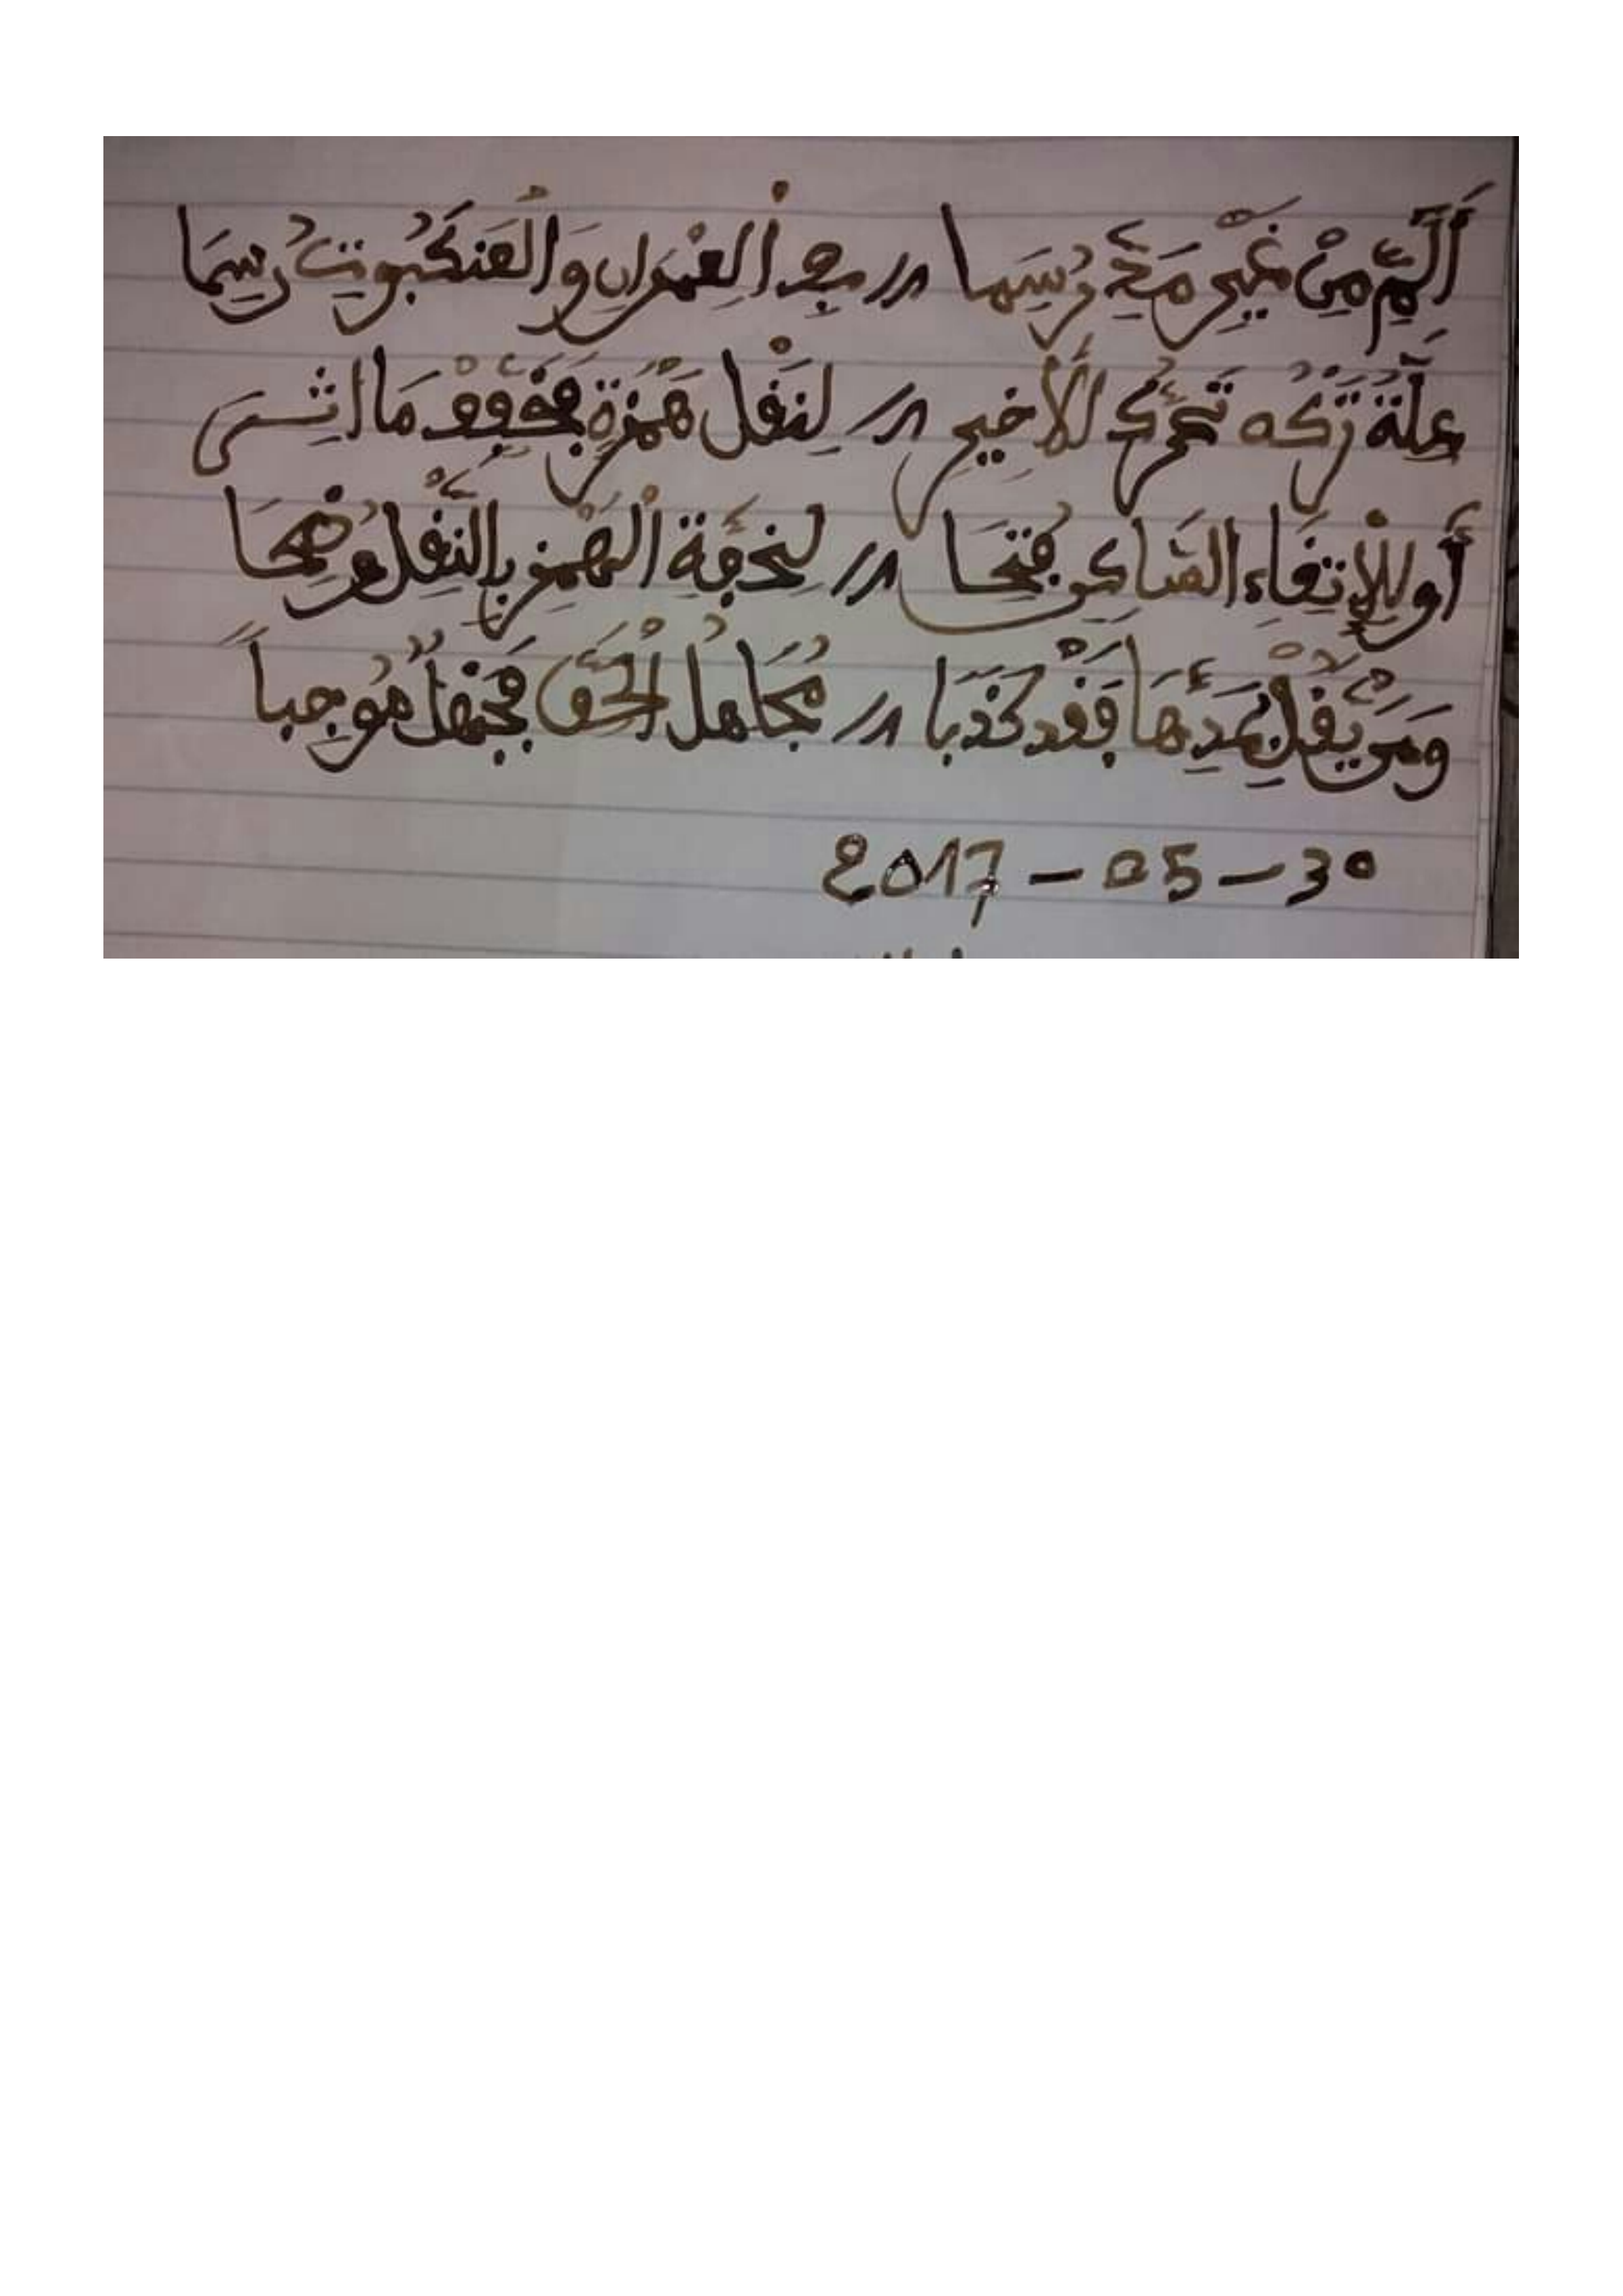 أَلَمِّ مِنْ غَيْرِ مَدٍّ رُسِمَا // فِي الْعِمْرَانِ وَالْعَنكَبُوتِ رُسِمَا
عِلَّةُ تَرْكِه تَحَرُّكُ الْأَخِيرِ // لِنَقْلِ هَمْزَةٍ
أَو لِلِالْتِقَاءِ السَّاكِنِ فُتِحَا // لِخِفَّةِ الْهَمْزِ بِالنَّقْلِ وَضِحَا
وَمَن يَّقُلْ بِمَدِّهَا فَقَدْ كَذَبَا // تَجَاهُلُ الْحَقِّ فَجَهْلٌ مُوجِباً
2017 - 05 - 30